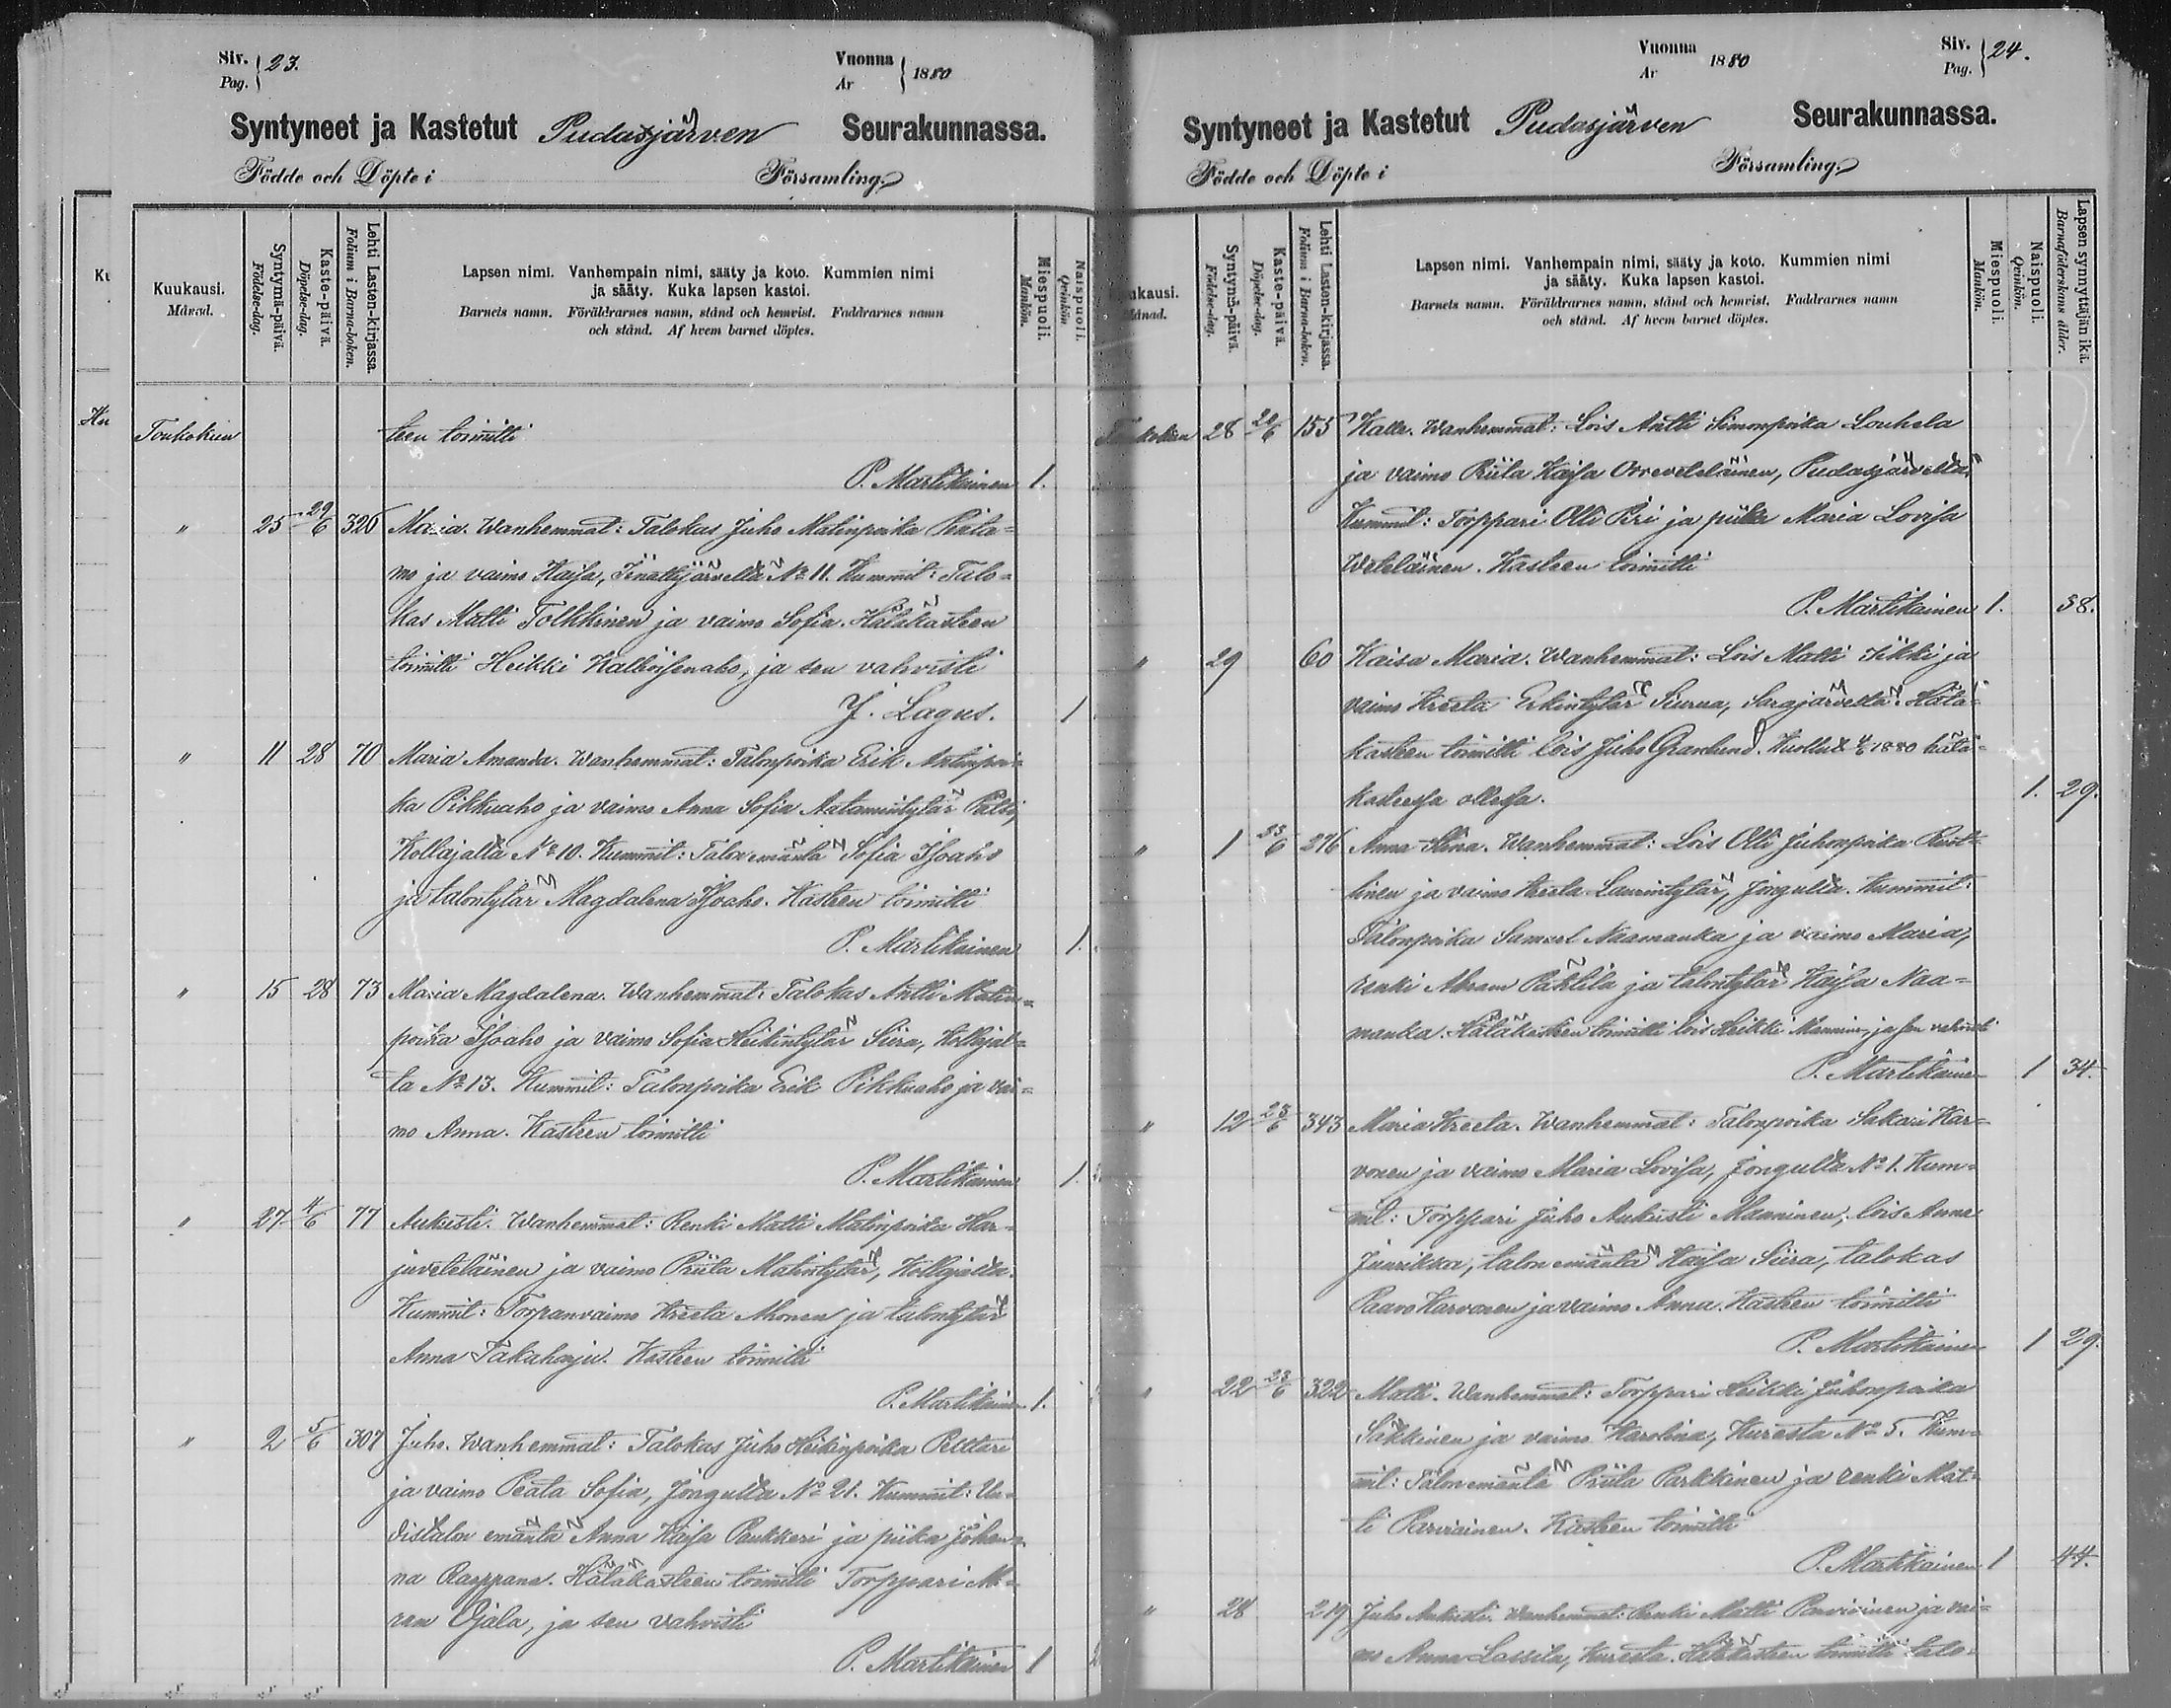 Siv. 23.
Pag.
Vuonna 1880
Ar
Syntyneet ja Kastetut Pudasjärven Seurakunnassa.
Födde och Döpte i Församling
Kuukausi.
Månad.
Syntymä-päivä.
Födelse-dag.
Kaste-päivä.
Döpelse-dag.
Lehti Lasten-kirjassa.
Folium i Barna-boken.
Lapsen nimi. Vanhempain nimi, sääty ja koto. Kummien nimi
ja sääty. Kuka lapsen kastoi.
Barnets namn. Föräldrarnes namn, stånd och hemvist. Faddrarnes namn
och stånd. Af hvem barnet döptes.
Miespuoli.
Mankön.
Naispuoli.
Qvinkön
Toukokuu teen toimitti
P. Martikainen 1.
" 25 29/6 326 Maria. Wanhemmat: Talokas Juho Matinpoika
mo ja vaimo Kaisa, Iinattijärveltä No 11. Kummit: Talo=
kas Matti Tolkkinen ja vaimo Sofia. Hätäkasteen
toimitti Heikki ja sen vahvisti
J. Lagus. 1
" 11 28 70 Maria Amanda. Wanhemmat: Talonpoika Erik Antinpoi=
ka Pikkuaho ja vaimo Anna Sofia Aatamintytär
Kollajalta No 10. Kummit: Talon emäntä Sofia Isoaho
ja talontytär Magdalena Isoaho. Kasteen toimitti
P. Martikainen 1.
" 15 28 73 Maria Magdalena. Wanhemmat: Talokas Antti Matin=
poika Isoaho ja vaimo Sofia Heikintytär Siira, Kollajal=
ta No 13. Kummit: Talonpoika Erik Pikkuaho ja vai=
mo Anna. Kasteen toimitti
P. Martikainen 1.
" 27 4/6 77 Aukusti. Wanhemmat: Renki Matti Matinpoika Har=
juveteläinen ja vaimo Priita Matintytär, Kollajalta.
Kummit: Torpanvaimo Kreeta Ahonen ja talontytär
Anna Takaharju. Kasteen toimitti
P. Martikainen 1.
" 2 5/6 307 Juho. Wanhemmat: Talokas Juho Heikinpoika Pelttari
ja vaimo Peata Sofia, Jongulta No 21. Kummit: Uu=
distalon emäntä Anna Kaisa Paukkeri ja piika Johan=
na Rasppana. Hätäkasteen toimitti Torppari
Ojala, ja sen vahvisti
P. Martikainen 1
Vuonna 1880
Ar
Siv. 24.
Pag.
Syntyneet ja Kastetut Pudasjärven Seurakunnassa.
Födde och Döpte i Församling
ukausi.
Månad.
Syntymä-päivä.
Födelse-dag.
Kaste-päivä.
Döpelse-dag.
Lehti Lasten-kirjassa.
Folium i Barna-boken.
Lapsen nimi. Vanhempain nimi, sääty ja koto. Kummien nimi
ja sääty. Kuka lapsen kastoi.
Barnets namn. Föräldrarnes namn, stånd och hemvist. Faddrarnes namn
och stånd. Af hvem barnet döptes.
Miespuoli.
Mankön.
Naispuoli.
Qvinkön.
Lapsen synnyttäjän ikä.
Barnaföderskans ålder.
Toukokuu 28 20/6 155 Kalle. Wanhemmat: Lois Antti Simonpoika Louhela
ja vaimo Riita Kaisa Pudasjärveltä.
Kummit: Torppari Olli Piri ja piika Maria Lovisa
Weteläinen. Kasteen toimitti
P. Martikainen 1. 38.
" 29 60 Kaisa Maria. Wanhemmat: Lois Matti Iikki ja
vaimo Kreeta Erkintytär Siurua, Sarajärveltä. Hätä=
kasteen toimitti lois Juho Granlund. Kuollut 1880 hätä=
kasteessa ollessa. 1. 29.
" 1 23/6 276 Anna Stina. Wanhemmat: Lois Olli Juhonpoika
tinen ja vaimo Kreeta Laurintytär, Jongulta. Kummit:
Talonpoika Samuel Naamanka ja vaimo Maria,
renki Abram Pätsilä ja talontytär Kaisa Naa=
manka. Hätäkasteen toimitti lois Heikki Manninen, ja sen vahvisti
P. Martikainen 1 34.
" 12 23/6 343 Maria Kreeta. Wanhemmat: Talonpoika Sakari Kar=
vonen ja vaimo Maria Lovisa, Jongulta No 1. Kum=
mit: Torppari Juho Aukusti Manninen, lois Anna
Juurikka, talon emäntä Kaisa Siira, talokas
Paavo Karvonen ja vaimo Anna. Kasteen toimitti
P. Martikainen 1 29.
" 22 23/6 322 Matti. Wanhemmat: Torppari Heikki Juhonpoika
Säkkinen ja vaimo Karolina, Kuresta No 5. Kum=
mit: Talon emäntä Priita Parkkinen ja renki Mat=
ti Parviainen. Kasteen toimitti
P. Martikainen 1 44.
" 28 219 Juho Aukusti. Wanhemmat: Renki Matti Parviainen ja vai=
mo Anna Lassila, Kuresta. Hätäkasteen toimitti talo=